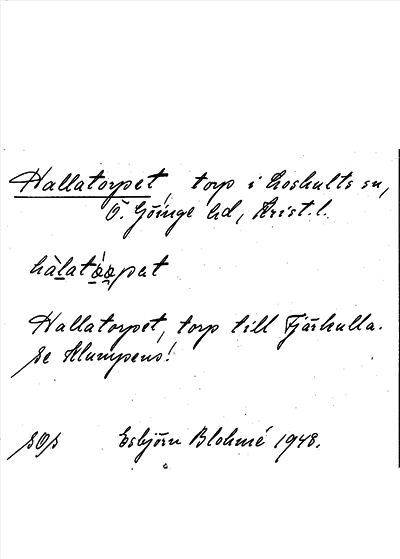 Hallatorpet, torp i Loshults sn,
Ö. Göinge hd, Krist. l.
hàlatǫ̀ǫpət
Hallatorpet, torp till Fjärhulla.
Se Klumpens!
SOS Esbjörn Blohmé 1948.